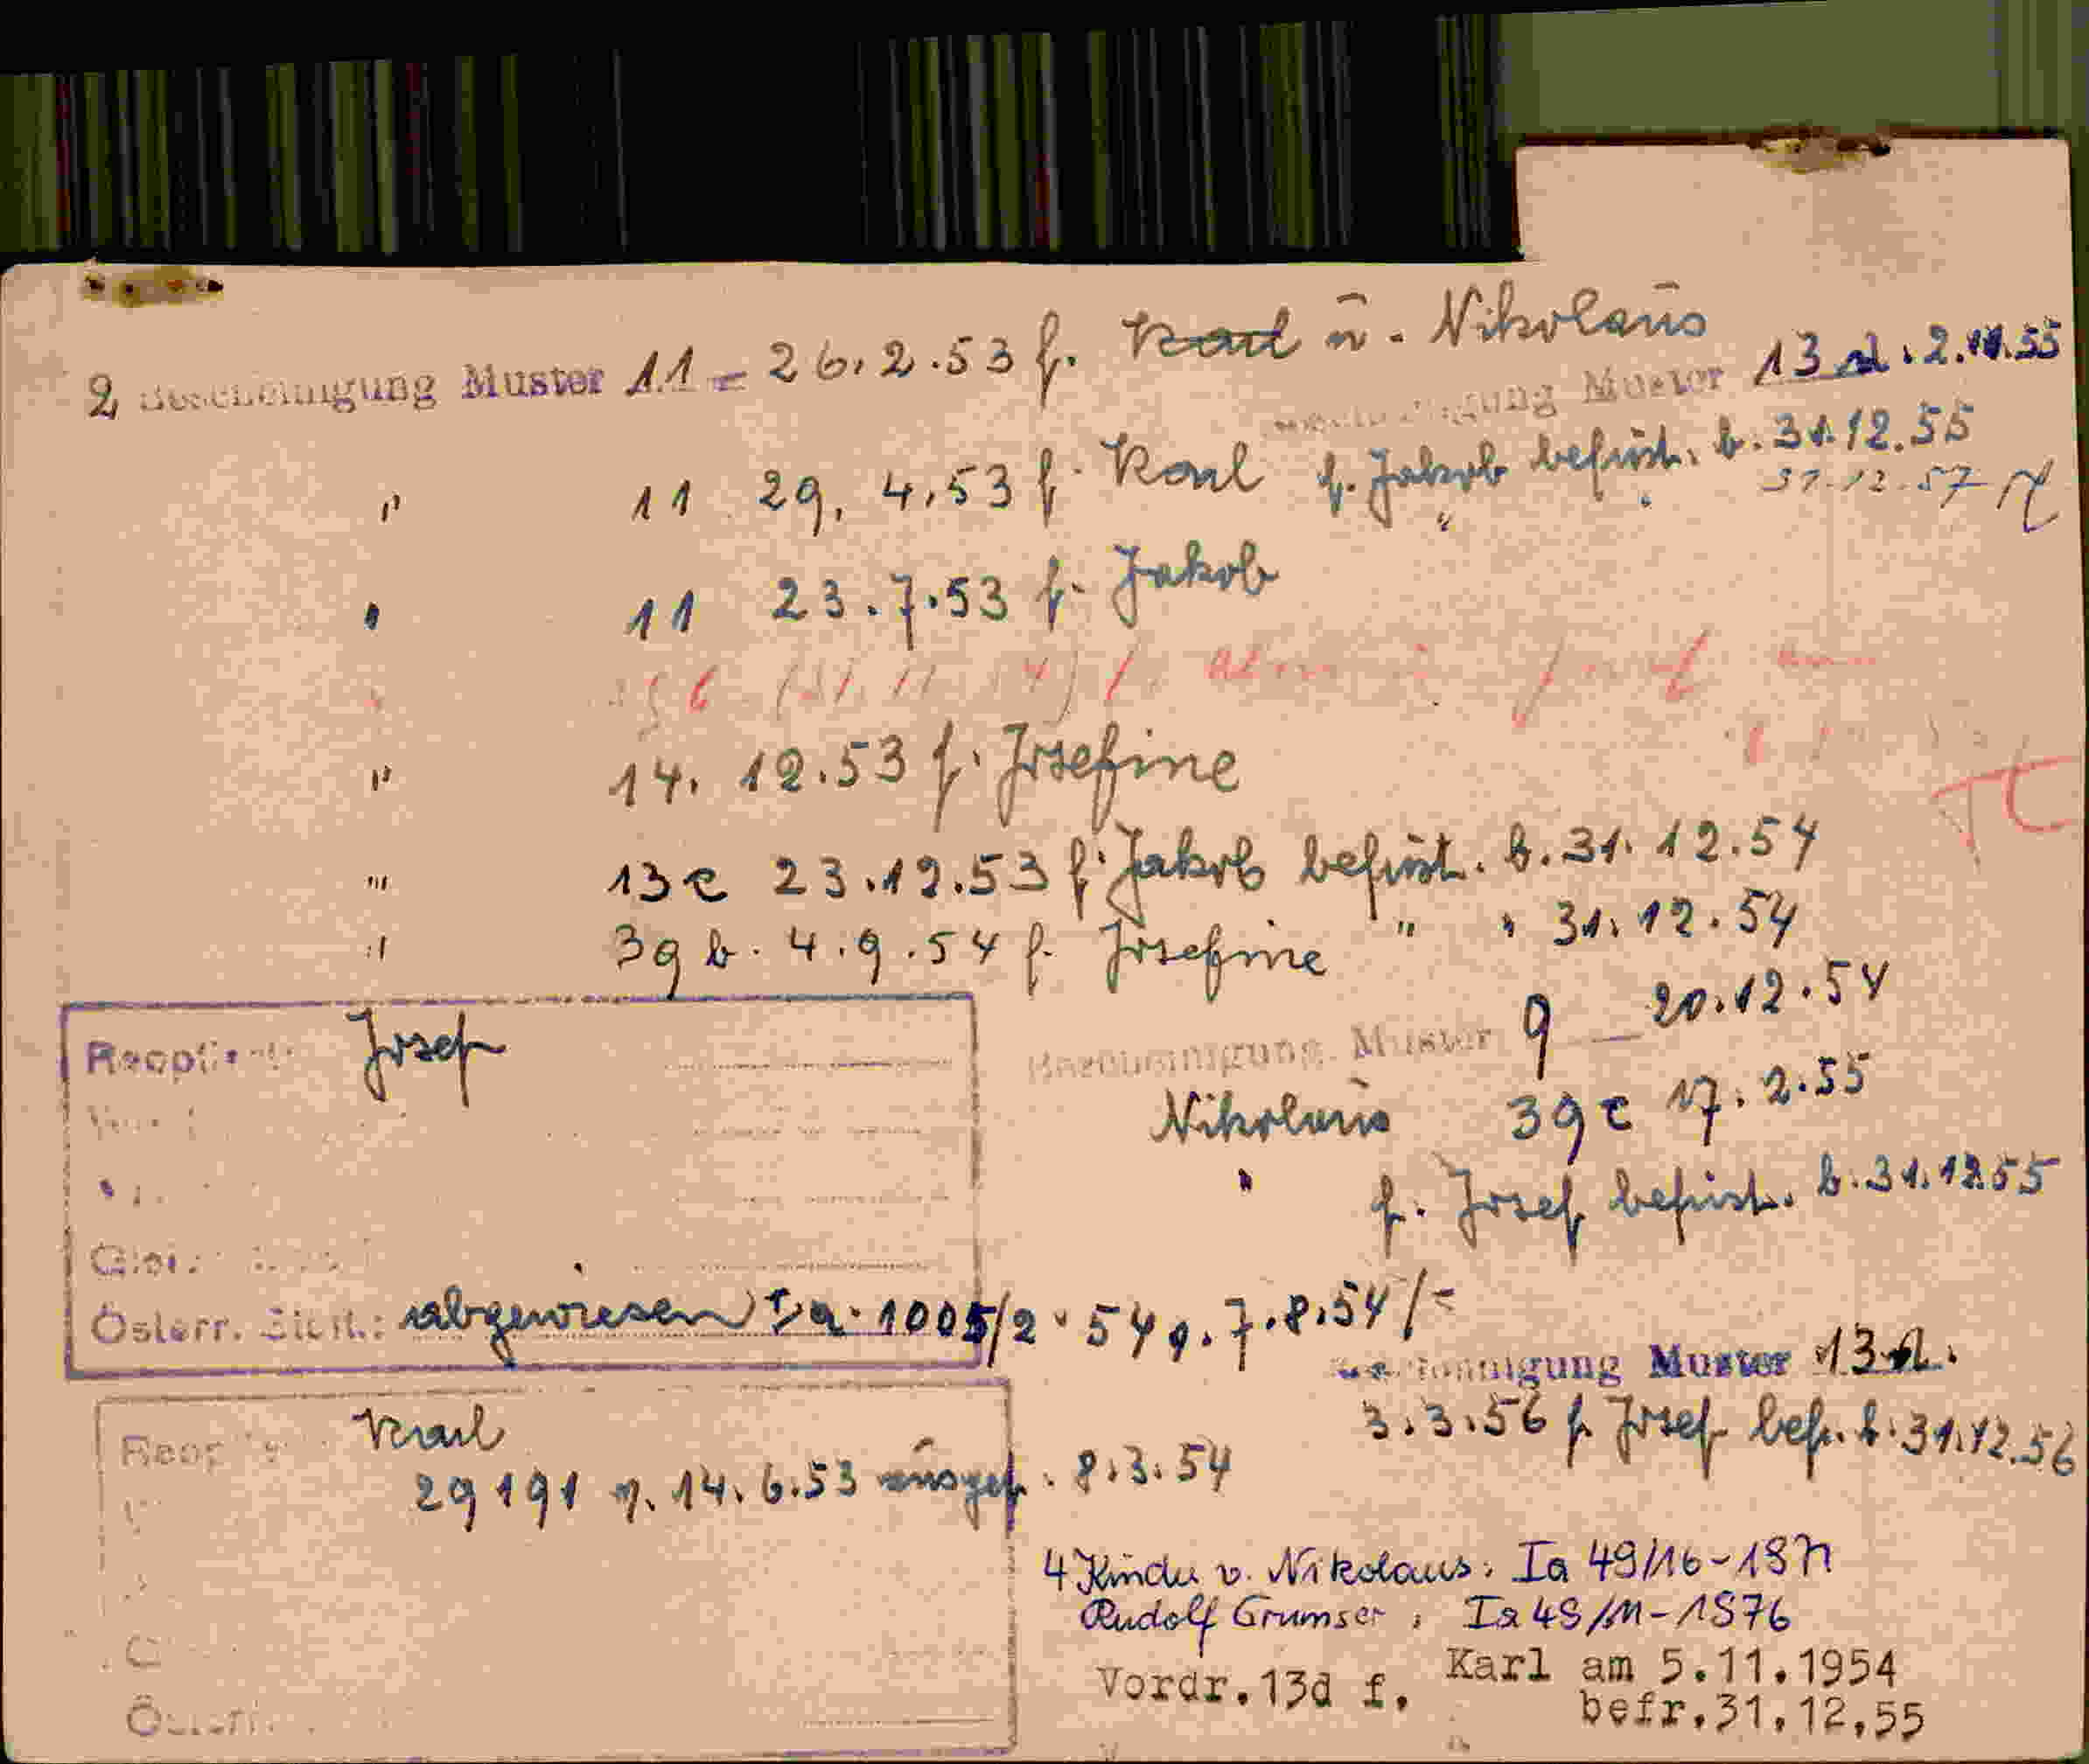 2 Bescheinigung Muster 11 - 26.2.53 f. Karl u. Nikolaus
Bescheinigung Muster 13 d. 2.11.55
" 11 29.4.53 f. Karl f. Jakob befrist. b. 31.12.55
" " 31.12.57
" 11 23.7.53 f. Jakob
" 14. 12.53 f. Josefine
" 13c 23.12.53 f. Jakob befrist. b. 31.12.54
" 39 b. 4.9.54 f. Josefine " " 31.12.54
Bescheinigung Muster 9 - 20.12.54
Nikolaus 39c 17.2.55
" f. Josef befrist. b. 31.12.55
Josef
Österr. abgewiesen Ia. 1005/2 - 54 v. 7.8.54 /-
Bescheinigung Muster 13 d.
3.3.56 f. Josef bef. b. 31.12.56
Karl
29191 v. 14.6.53 ausgef. 8.3.54
4 Kinder v. Nikolaus: Ia 49/16-197
Rudolf Grumser, Ia 49/11-1976
Vordr.13d f. Karl am 5.11.1954
befr.31.12.55